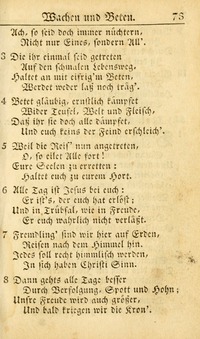 Wachen und Beten. 73
Ach, so seid doch immer nüchtern,
Nicht nur Eines, sondern All'.
3 Die ihr einmal seid getreten
Auf den schmalen Lebensweg,
Haltet an mit eifrig'm Beten,
Werdet weder laß noch träg'.
4 Betet gläubig, ernstlich kämpfet
Wider Teufel, Welt und Fleisch,
Daß ihr sie doch alle dämpfet,
Und euch keins der Feind erschleich'.
5 Weil die Reis' nun angetreten,
O, so eilet Alle fort!
Eure Seelen zu erretten:
Haltet euch zu eurem Hort.
6 Alle Tag ist Jesus bei euch:
Er ist's, der euch hat erlöst;
Und in Trübsal, wie in Freude,
Er euch wahrlich nicht verläßt.
7 Fremdling' sind wir hier auf Erden,
Reisen nach dem Himmel hin.
Jedes soll recht himmlisch werden,
In sich haben Christi Sinn.
8 Dann gehts alle Tage besser
Durch Verfolgung, Spott und Hohn;
Unsre Freude wird auch größer,
Und bald kriegen wir die Kron'.